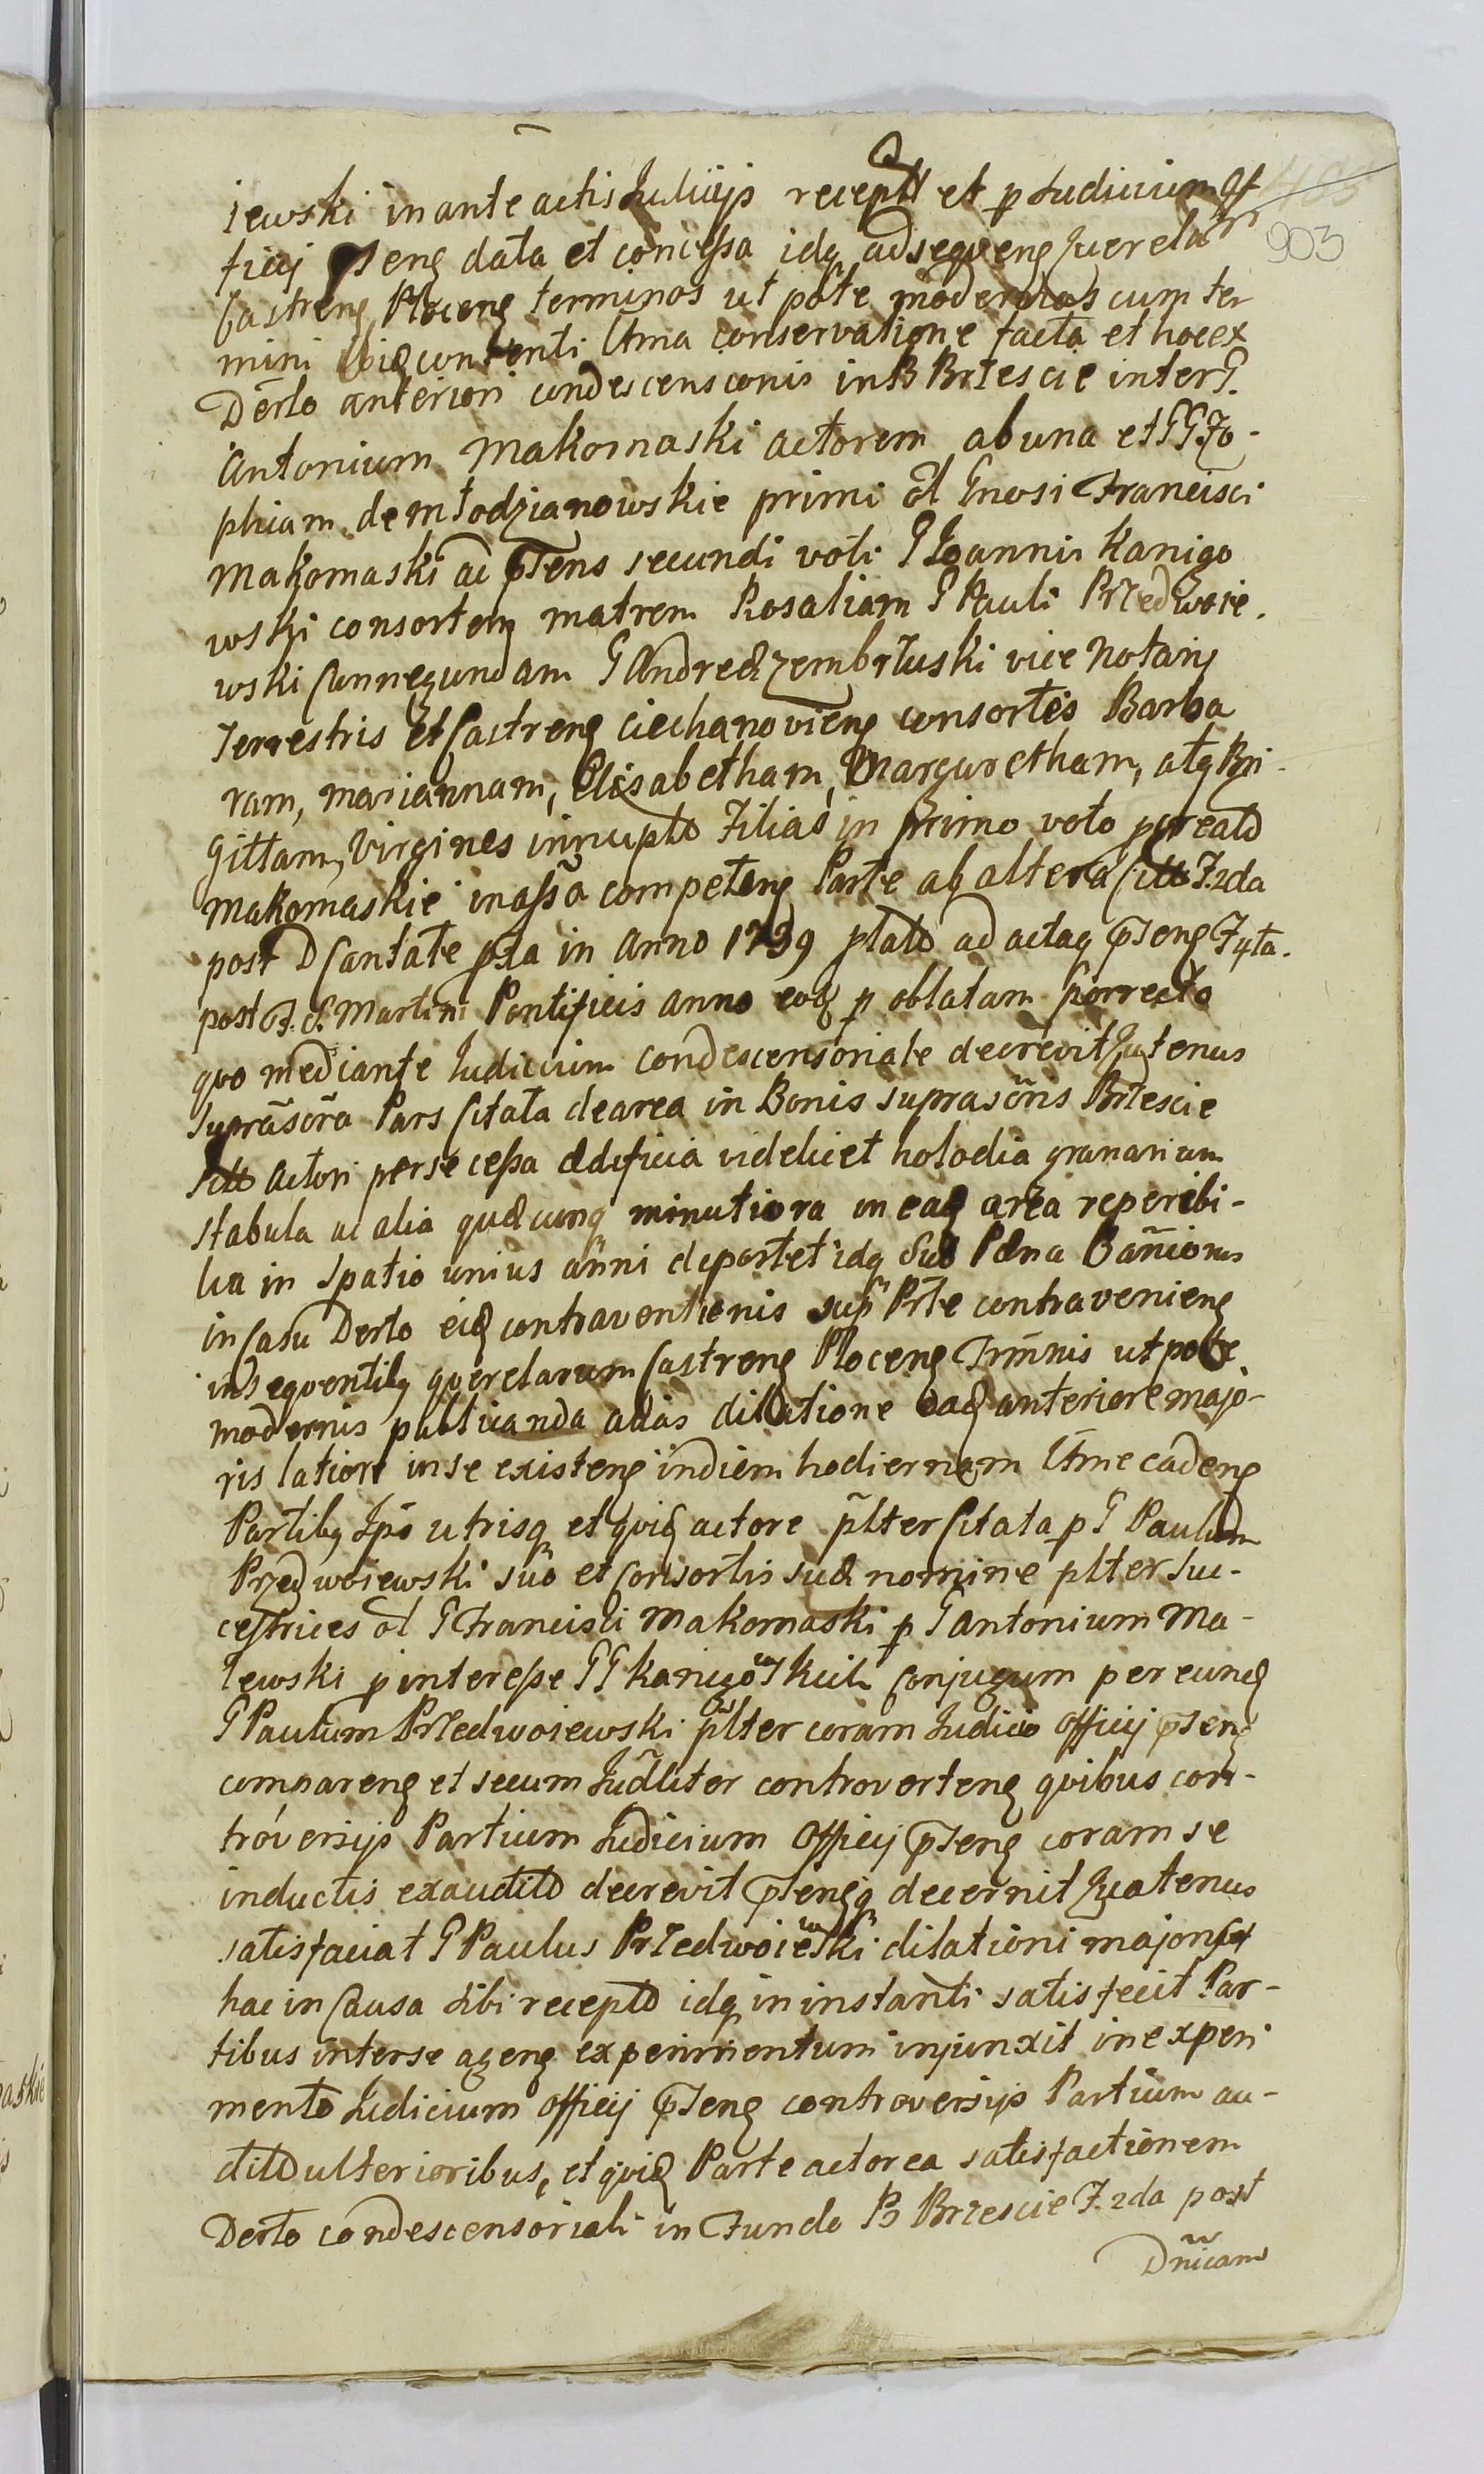 903
iewski in ante actis Judicijs recept et p Judicium Of
ficij pnseng data et concessa idq adsequeng querelar
Castreng Ploceng terminos ut pote modernos cum ter
mini ibiq contenti ltma conservatione facta et hoc ex
Derto anteriori condescensconis in B Brzescie inter G.
Antonium Makomaski actorem ab una et GG Zo-
phiam de Młodzianowskie primi ol Gnosi Francisci
Makomaski ac pnsens secundi voti G Joannis Kanigo
wski consortem matrem Rosaliam G Pauli Przedwoie.
wski Cunnegundam G Andreæ Zembrzuski vice Notarij
Terrestris et Castreng Ciechanovieng consortes Barba
ram, Mariannam, Elisabetham, Margaretham, atq Bri-
gittam, Virgines innuptas Filias in primo voto pcreatas
Makomaskie in assa competeng Parte ab altera Citt F. 2da
post D Cantate pxa in Anno 1739 platto ad actaq pnseng F. 4ta.
post F. S. Martini Pontificis Anno eoq p oblatam porrecto
quo mediante Judicium condescensoriale decrevit Quatenus
Suprascra Pars Citata de area in Bonis suprascris Brzescie
Actori per se cessa ædificia videlicet holodia granarium
stabula ac alia quæcunq minutiora in eaq area reperibi-
lia in spatio unius anni deportet idq sub Pæna Banionis
in Casu Derto eiq contraventionis sup Prte contravenieng
insequentibq querelarum Castreng Ploceng Trmnis ut pote
modernis publicanda alias dilatione eaq anteriore majo-
ris latiori in se existeng in diem hodiernam ltme cadeng
Partibq Ipso utrisq et quiq actore plter Citata p G Paulum
Przedwoiewski suo et Consortis suæ nomine plter Suc-
cestrices ol G Francisci Makomaski p G Antonium Ma-
lewski p interesse GG Kanigowskich Conjugum per eunq
G Paulum Przedwoiewski plter coram Judicio Officij pnseng
compareng et secum Judliter controverteng quibus con-
troversijs Partium Judicium Officij pnseng coram se
inductis exauditis decrevit pnsengq decernit Quatenus
satisfaciat G Paulus Przedwoiewski dilationi majori ex
hac in Causa sibi recepto idq in instanti satisfecit Par-
tibus inter se ageng experimentum injunxit in experi
mento Judicium Officij pnseng controversijs Partium au-
ditis ulterioribus, et quiq Parte actorea satisfactionem
Derto condescensoriali in Fundo B Brzescie F. 2da post
Dnicam